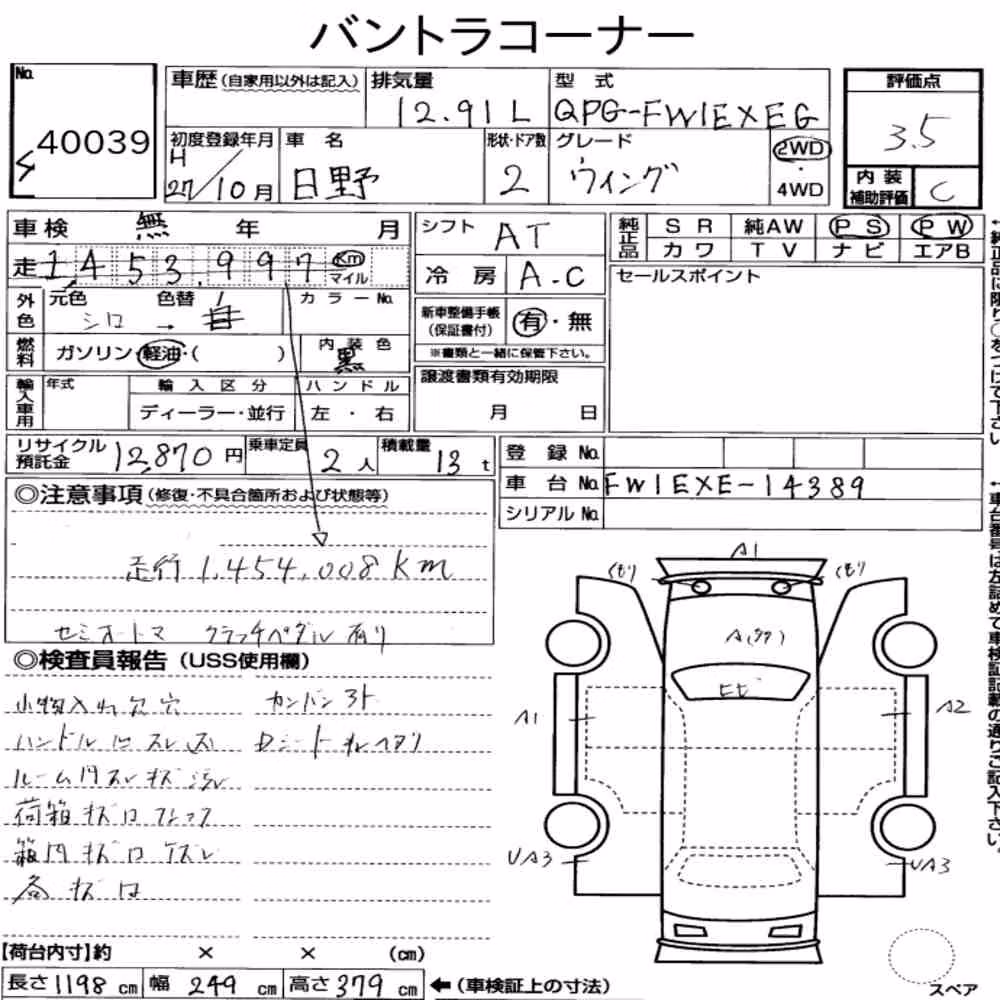 バントラコーナー
No. 40039
車歴 (自家用以外は記入)
排気量 12.91 L
型式 QPG-FW1EXEG
評価点 3.5
初度登録年月 H 27/10月
車名 日野
形状・ドア数 2
グレード ウイング
2WD・4WD
内装補助評価 C
車検 無 年 月
シフト AT
純正品 SR 純AW PS PW
カワ TV ナビ エアB
走 1,453,997 Km マイル
冷房 A.C
セールスポイント
外色 元色 シロ → 色替
カラーNo.
新車整備手帳(保証書付) 有・無
※書類と一緒に保管下さい。
燃料 ガソリン・軽油・( )
内装色 黒
譲渡書類有効期限
月 日
輸入車用 年式 輸入区分 ハンドル
ディーラー・並行 左・右
リサイクル預託金 12,870円
乗車定員 2人
積載量 13t
登録No.
車台No. FW1EXE-14389
シリアルNo.
◎注意事項(修復・不具合箇所および状態等)
走行 1,454,008 Km
セミオートマ クラッチペダル有り
◎検査員報告(USS使用欄)
小物入れ欠 穴 カンバン3ト
ハンドル
ルーム内スレキズ
荷箱キズ凹
箱内キズ凹
各キズ凹
【荷台内寸】約 × × (cm)
長さ 1198 cm 幅 249 cm 高さ 379 cm ←(車検証上の寸法)
A1
くもり くもり
ヒビ
A1
A2
UA3
UA3
スペア